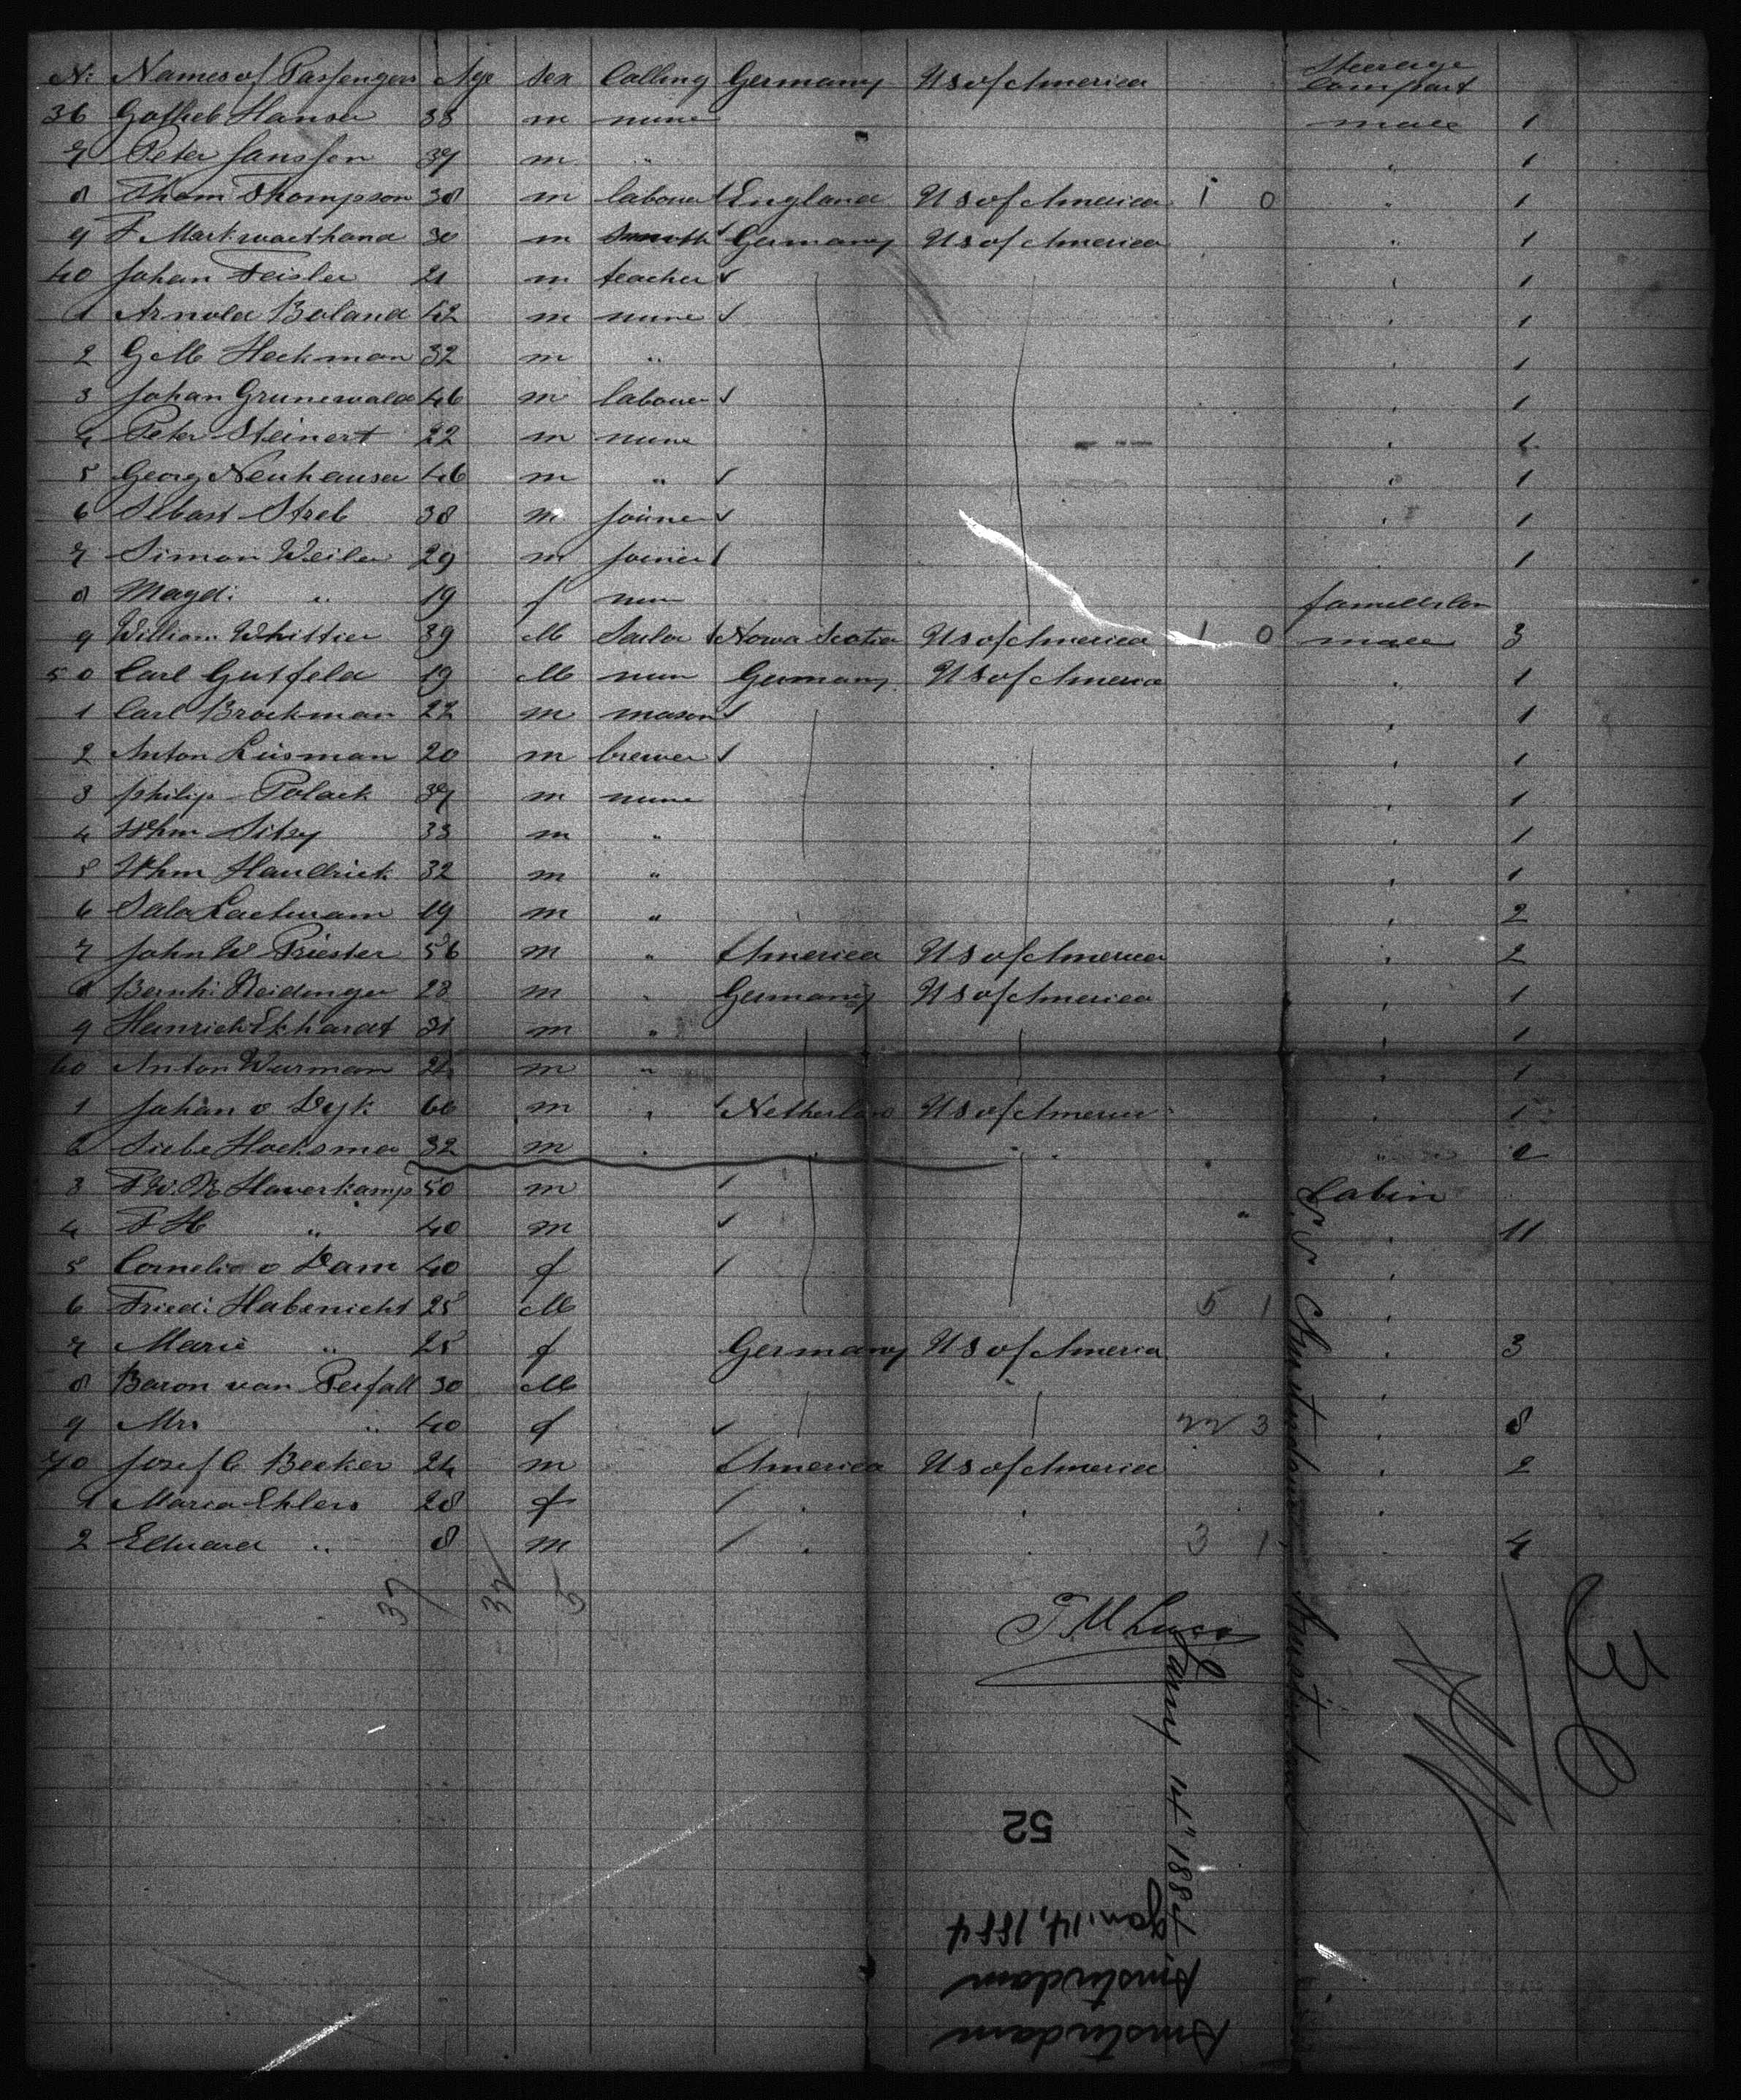 No Names of Passengers Age Sex Calling Germany US of America Steerage Compart
36 Gotlieb Hansen 38 m none male 1
7 Peter Janssen 37 m " " 1
8 Thom Thompson 38 m labourer England US of America 1 0 " 1
9 F Markwaethand 30 m Smith Germany US of America " 1
40 Johan Feisler 21 m teacher " 1
1 Arnold Boland 42 m none " 1
2 G M Heckman 32 m " " 1
3 Johan Grunewald 46 m labourer " 1
4 Peter Steinert 22 m none " 1
5 Georg Neuhauser 46 m " " 1
6 Sebast Streb 38 m joiner " 1
7 Simon Weiler 29 m joiner " 1
8 Magd: " 19 f non
9 William Whittier 39 M Sailor Nowa Scotia US of America 1 0 male 3
50 Carl Gutfeld 19 M non Germany US of America " 1
1 Carl Brockman 22 m mason " 1
2 Anton Luisman 20 m brewer " 1
3 Philip Polack 37 m none " 1
4 Whm Sitzy 33 m " " 1
5 Whm 32 m " " 1
6 19 m " " 2
7 John W Priester 56 m " America US of America " 2
8 Bernh: Reidenger 28 m " Germany US of America " 1
9 Heinrich Ekhardt 31 m " " 1
60 Anton Wurman 24 m " " 1
1 Johan v Dyk 66 m " Netherland US of America " 1
2 Siebe Hoeksma 32 m " " " " 2
3 F W. R Haverkamp 50 m Cabin
4 F H " 40 m " 11
5 Cornelia v Dam 40 f "
6 Fried: Habenicht 25 M 5 1 "
7 Marie " 25 f Germany US of America " 3
8 Baron van Perfall 30 M "
9 Mrs " 40 f 22 3 " 8
70 Josef C Becker 24 m America US of America " 2
1 Maria Ehlers 28 f " " "
2 Eduard " 8 m " " 3 1 " 4
37 32 5
S.S. Amsterdam Amsterdam
Jany 14" 1884
52
Jan. 14, 1884
Amsterdam
Amsterdam